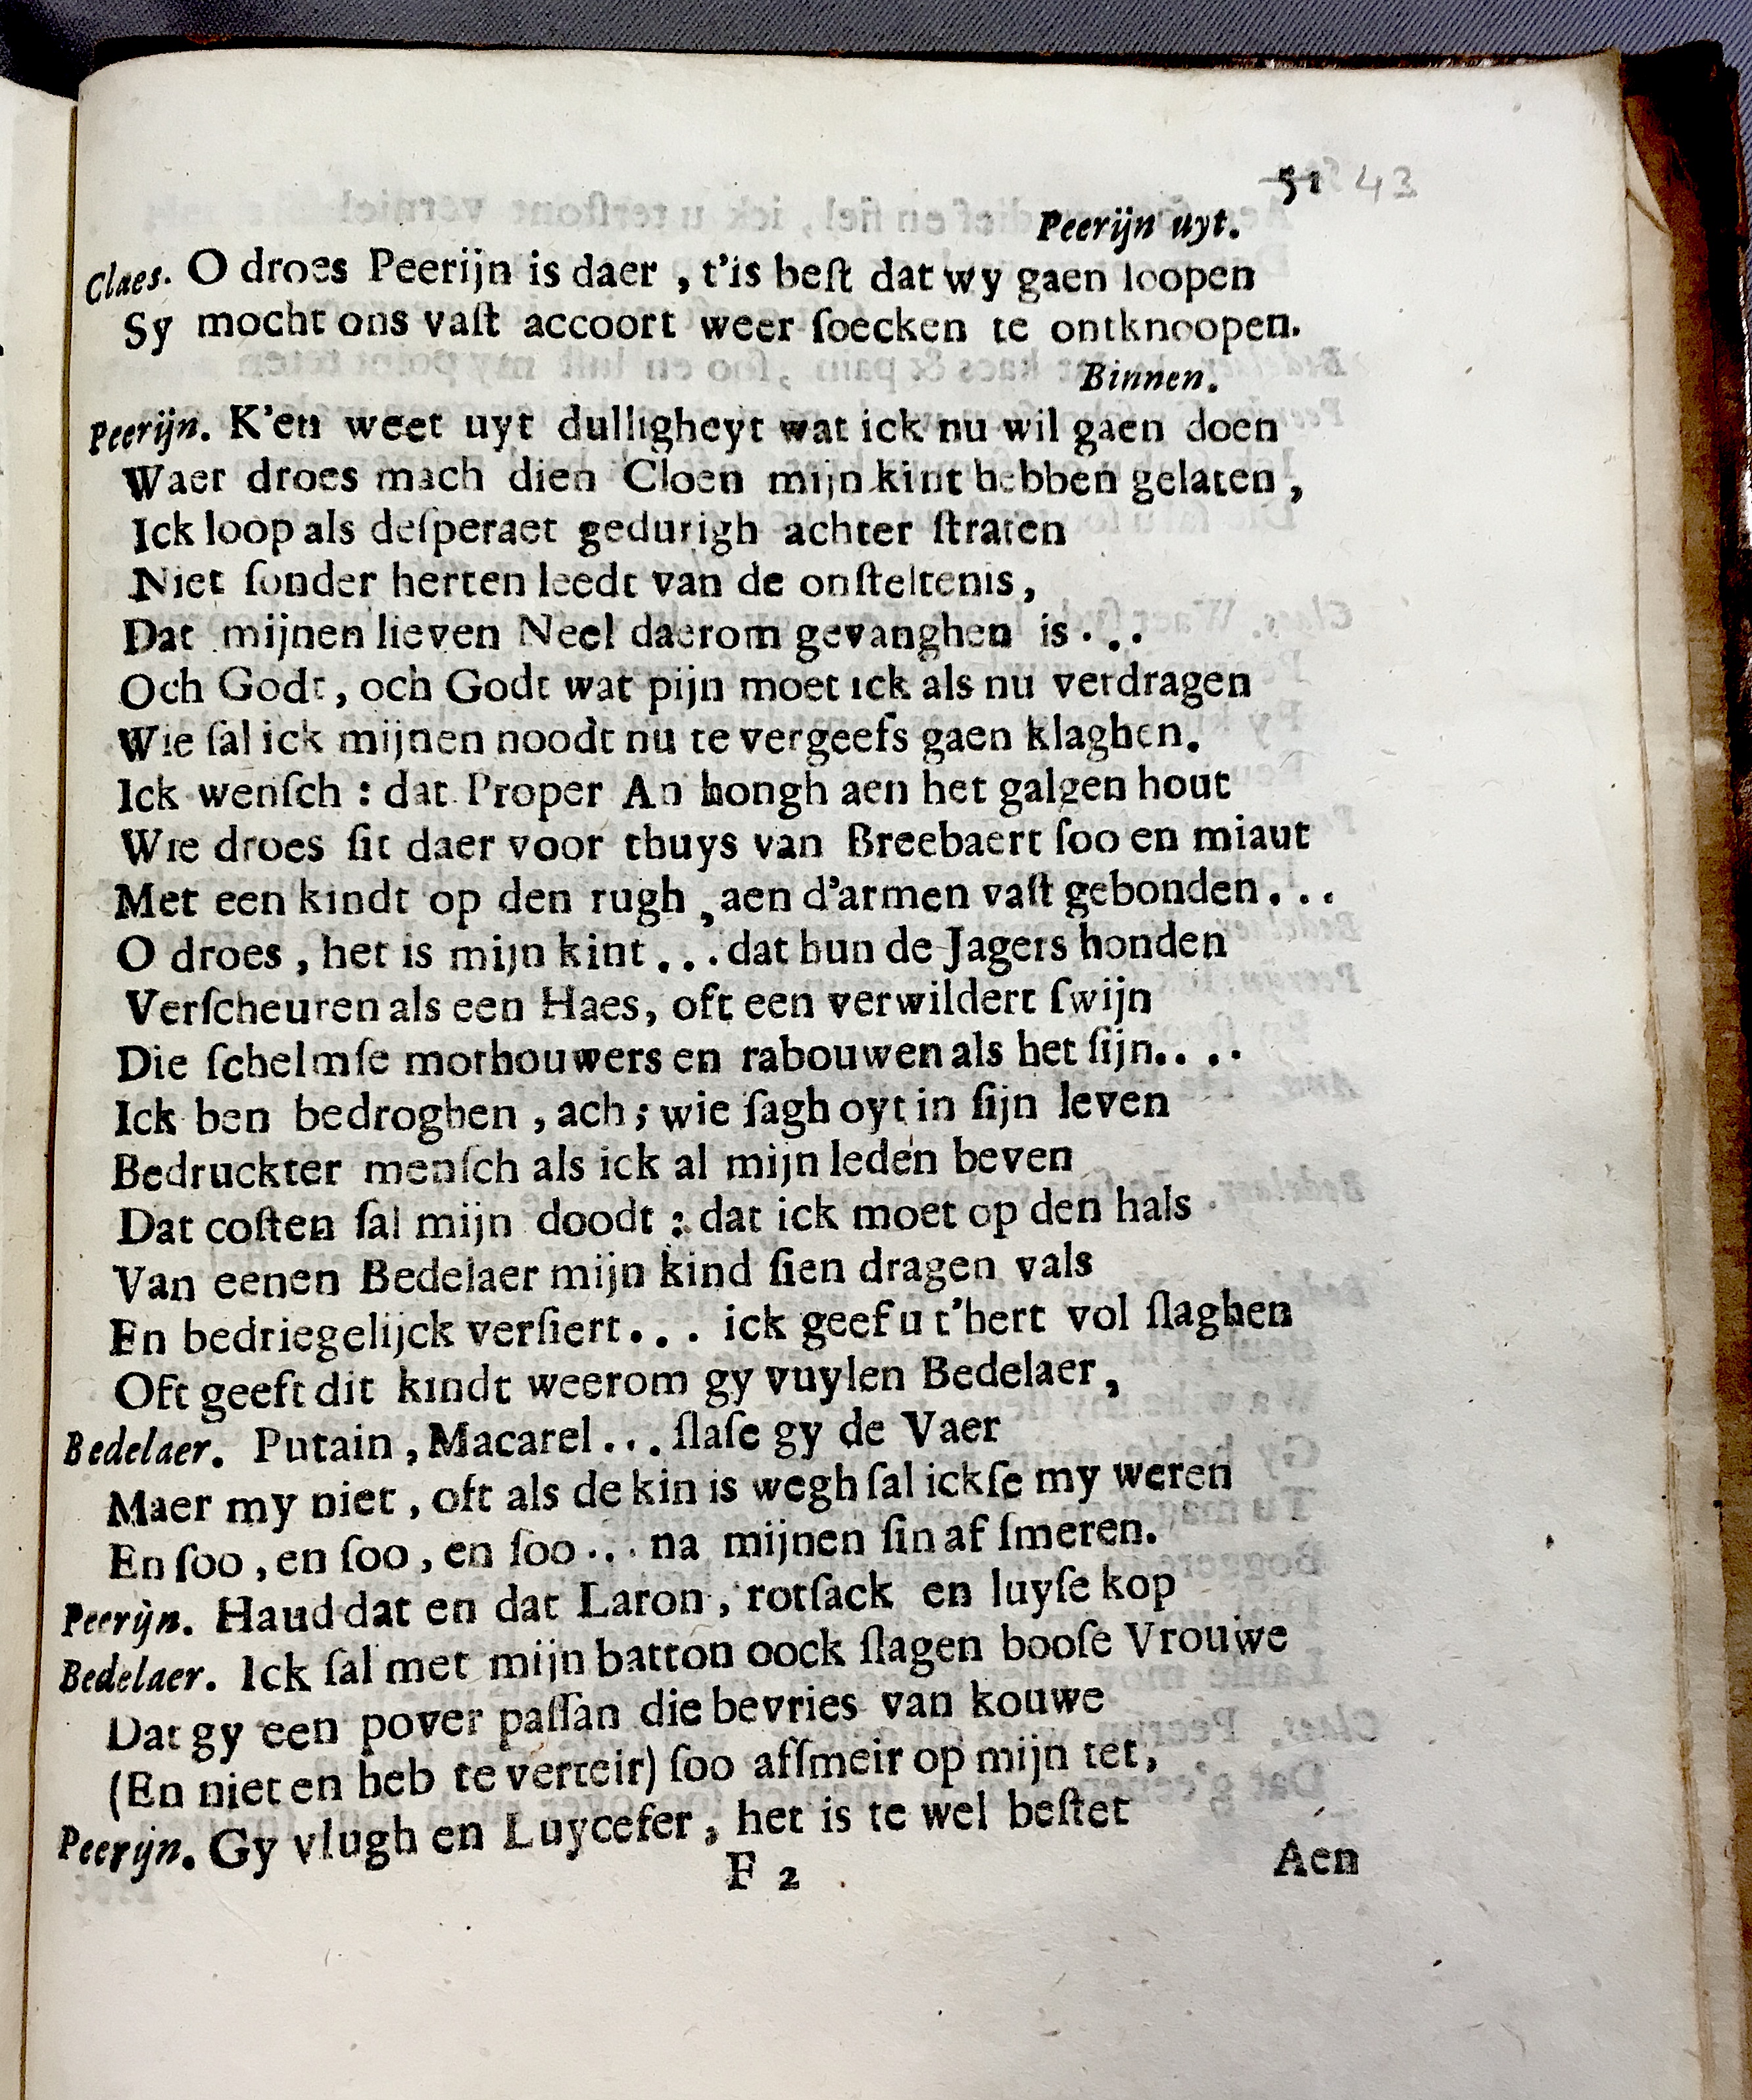 51 43
Peerijn uyt.
Claes. O droes Peerijn is daer, t'is beſt dat wy gaen loopen
Sy mocht ons vaſt accoort weer ſoecken te ontknoopen.
Binnen.
Peerijn. K'en weet uyt dulligheyt wat ick nu wil gaen doen
Waer droes mach dien Cloen mijn kint hebben gelaten,
Ick loop als deſperaet gedurigh achter ſtraten
Niet ſonder herten leedt van de onſteltenis,
Dat mijnen lieven Neel daerom gevanghen is...
Och Godt, och Godt wat pijn moet ick als nu verdragen
Wie ſal ick mijnen noodt nu te vergeefs gaen klaghen.
Ick wenſch : dat Proper An hongh aen het galgen hout
Wie droes ſit daer voor thuys van Breebaert ſoo en miaut
Met een kindt op den rugh, aen d'armen vaſt gebonden...
O droes, het is mijn kint... dat hun de Jagers honden
Verſcheuren als een Haes, oft een verwildert ſwijn
Die ſchelmſe mothouwers en rabouwen als het ſijn....
Ick ben bedroghen, ach; wie ſagh oyt in ſijn leven
Bedruckter menſch als ick al mijn leden beven
Dat coſten ſal mijn doodt ; dat ick moet op den hals
Van eenen Bedelaer mijn kind ſien dragen vals
En bedriegelijck verſiert... ick geef u t'hert vol ſlaghen
Oft geeft dit kindt weerom gy vuylen Bedelaer,
Bedelaer. Putain, Macarel... ſlaſe gy de Vaer
Maer my niet, oft als de kin is wegh ſal ickſe my weren
En ſoo, en ſoo, en ſoo... na mijnen ſin af ſmeren.
Peerijn. Haud dat en dat Laron, rotſack en luyſe kop
Bedelaer. Ick ſal met mijn batton oock ſlagen booſe Vrouwe
Dat gy een pover paſſan die bevries van kouwe
(En niet en heb te verteir) ſoo afſmeir op mijn tet,
Peerijn. Gy vlugh en Luycefer, het is te wel beſtet
F 2 Aen